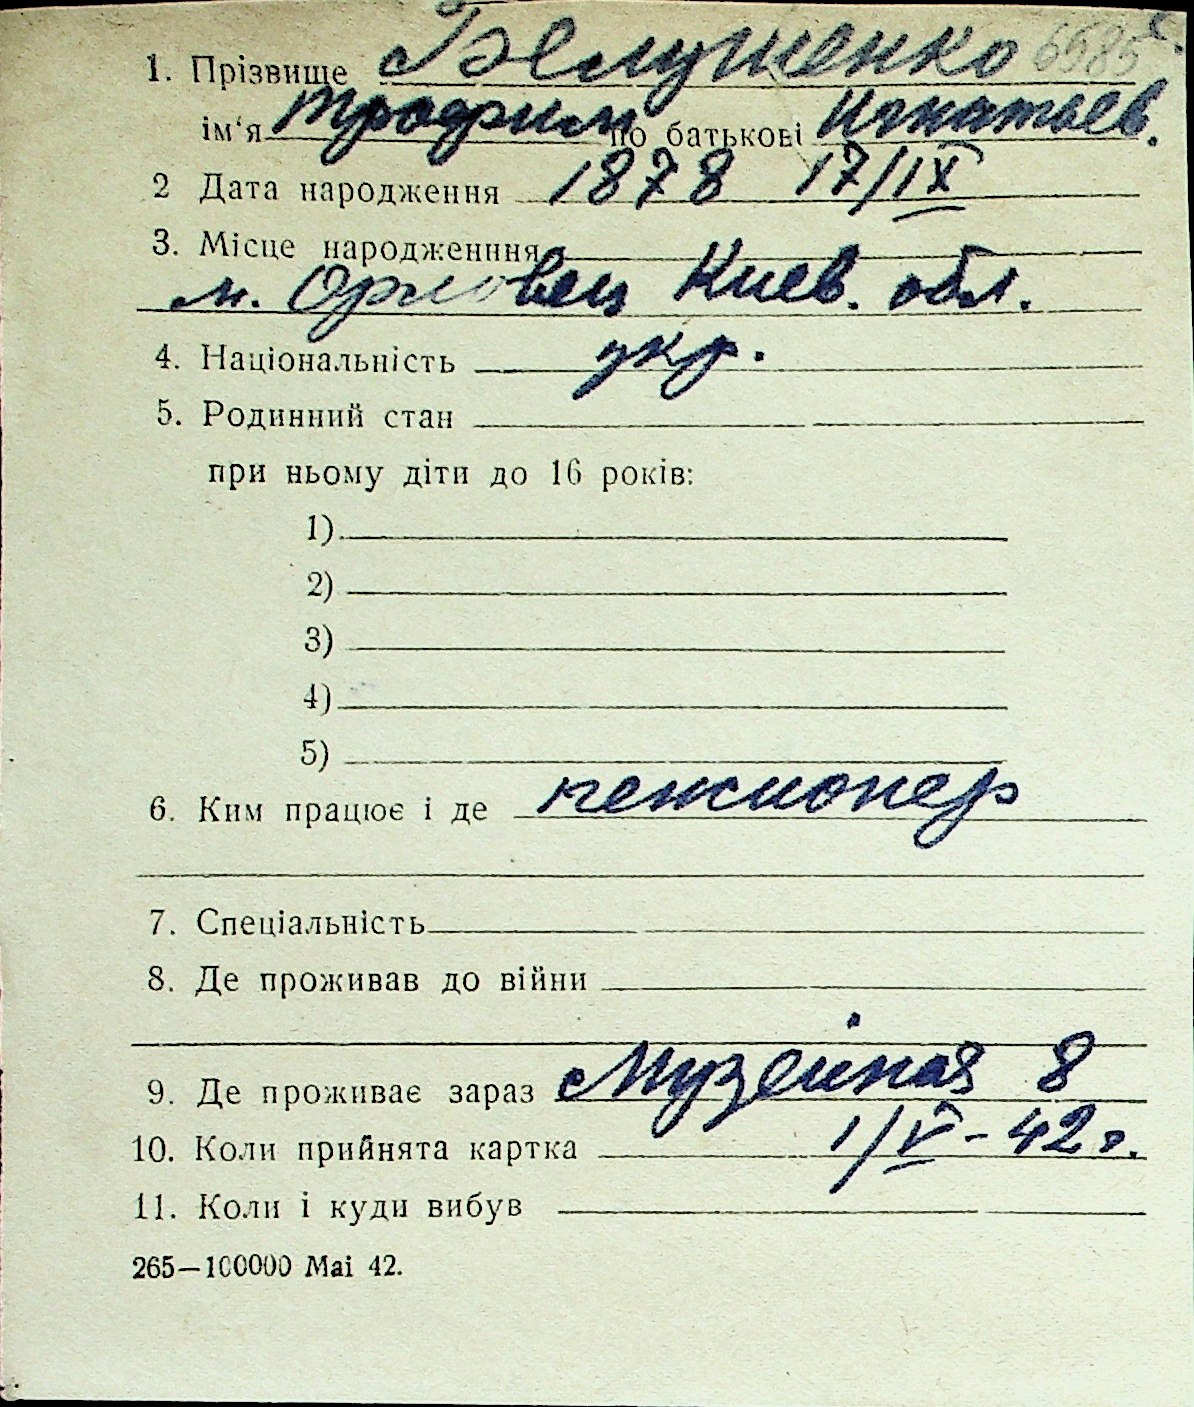 1. Прізвище Белушенко 6985
ім'я Трофим по батькові Игнатьев.
2 Дата народження 1878 17/IX
3. Місце народженння
м. Орловец Киев. обл.
4. Національність укр.
5. Родинний стан
при ньому діти до 16 років:
1)
2)
3)
4)
5)
6. Ким працює і де пенсионер
7. Спеціальність
8. Де проживав до війни
9. Де проживає зараз Музейная 8
10. Коли прийнята картка 1/V - 42 г.
11. Коли і куди вибув
265—100000 Mai 42.